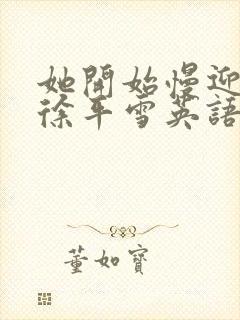 她開始慢迎
徐平雪英語
董如寶